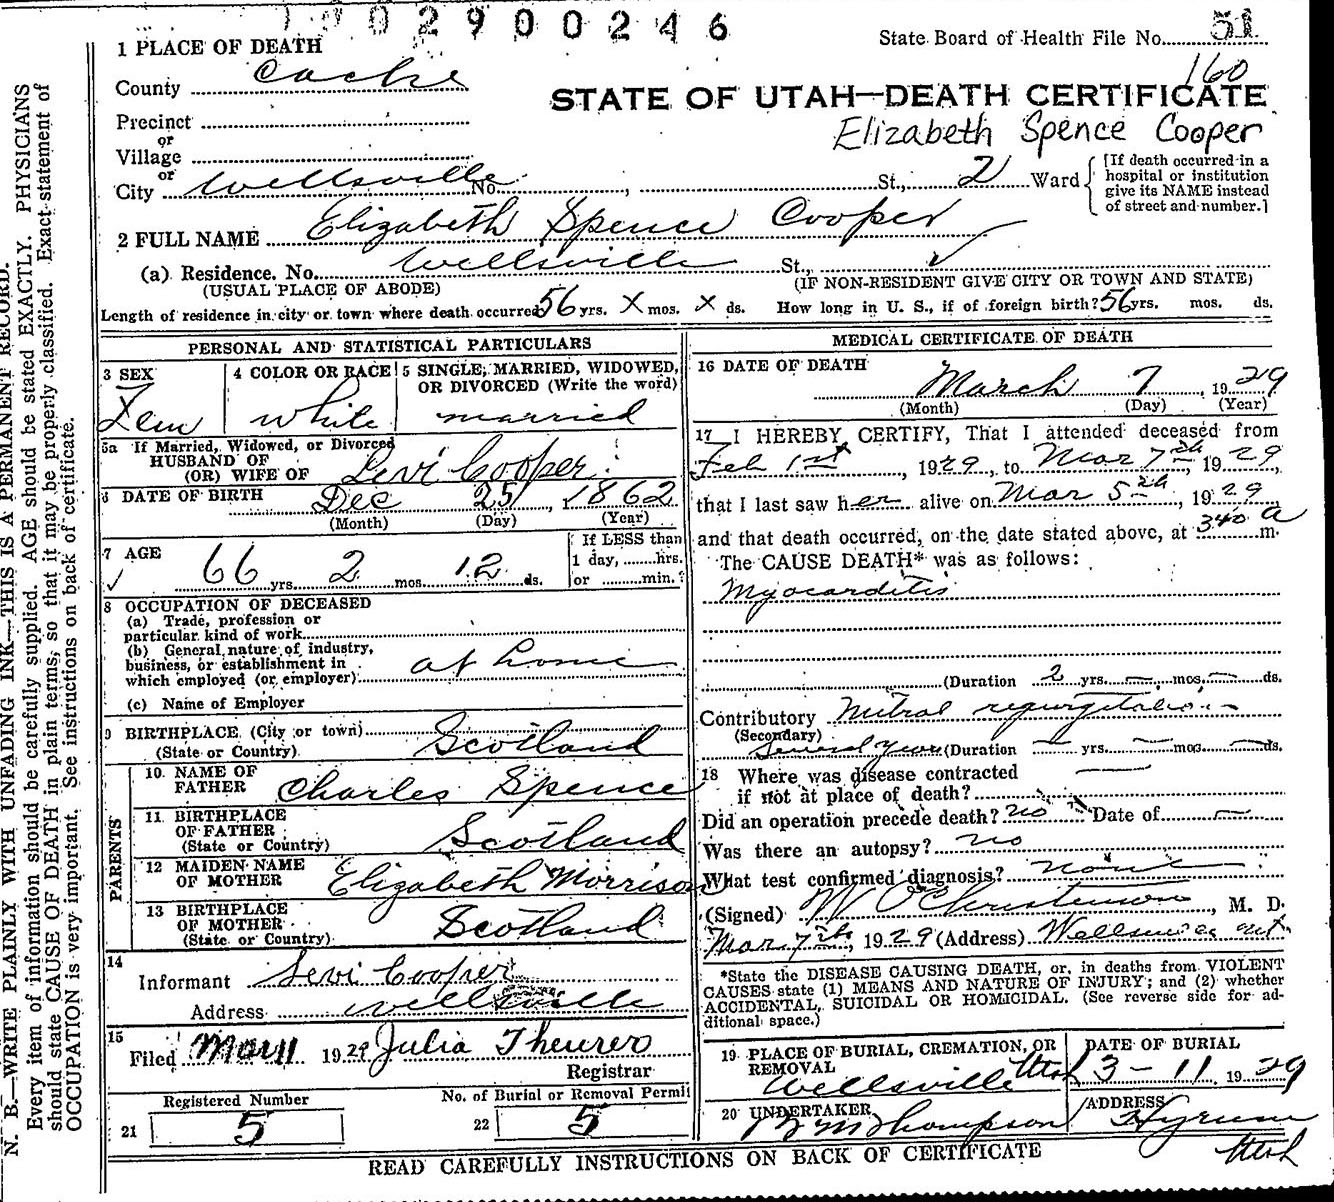 1002900246
State Board of Health File No. 51
160
1 PLACE OF DEATH
County Cache
STATE OF UTAH—DEATH CERTIFICATE
Elizabeth Spence Cooper
Precinct
or
Village
or
City Wellsville No. , St., 2 Ward
[If death occurred in a hospital or institution give its NAME instead of street and number.]
2 FULL NAME Elizabeth Spence Cooper
(a) Residence. No. Wellsville St.,
(USUAL PLACE OF ABODE) (IF NON-RESIDENT GIVE CITY OR TOWN AND STATE)
Length of residence in city or town where death occurred 56 yrs. X mos. X ds. How long in U. S., if of foreign birth? 56 yrs. mos. ds.
PERSONAL AND STATISTICAL PARTICULARS
3 SEX Fem
4 COLOR OR RACE white
5 SINGLE, MARRIED, WIDOWED, OR DIVORCED (Write the word) married
5a If Married, Widowed, or Divorced
HUSBAND OF
(OR) WIFE OF Levi Cooper
6 DATE OF BIRTH Dec 25, 1862
(Month) (Day) (Year)
7 AGE 66 yrs. 2 mos. 12 ds.
If LESS than
1 day, ......hrs.
or ......min.?
8 OCCUPATION OF DECEASED
(a) Trade, profession or
particular kind of work
(b) General nature of industry,
business, or establishment in
which employed (or employer) at home
(c) Name of Employer
9 BIRTHPLACE (City or town)
(State or Country) Scotland
PARENTS
10. NAME OF FATHER Charles Spence
11. BIRTHPLACE OF FATHER
(State or Country) Scotland
12 MAIDEN NAME OF MOTHER Elizabeth Morrison
13 BIRTHPLACE OF MOTHER
(State or Country) Scotland
14
Informant Levi Cooper
Address Wellsville
15
Filed Mar 11 1929 Julia Theurer
Registrar
Registered Number
21 5
No. of Burial or Removal Permit
22 5
MEDICAL CERTIFICATE OF DEATH
16 DATE OF DEATH
March 7, 1929
(Month) (Day) (Year)
17 I HEREBY CERTIFY, That I attended deceased from
Feb 1st, 1929, to Mar 7th, 1929,
that I last saw her alive on Mar 5th, 1929
and that death occurred, on the date stated above, at 340 a m.
The CAUSE DEATH* was as follows:
Myocarditis
(Duration 2 yrs. — mos. — ds.
Contributory Mitral regurgitation
(Secondary)
Several years (Duration — yrs. — mos. — ds.
18 Where was disease contracted
if not at place of death? —
Did an operation precede death? no Date of —
Was there an autopsy? no
What test confirmed diagnosis? none
(Signed) W O Christenson, M. D.
Mar 7th, 1929 (Address) Wellsville ut.
*State the DISEASE CAUSING DEATH, or, in deaths from VIOLENT
CAUSES state (1) MEANS AND NATURE OF INJURY; and (2) whether
ACCIDENTAL, SUICIDAL OR HOMICIDAL. (See reverse side for ad-
ditional space.)
19 PLACE OF BURIAL, CREMATION, OR REMOVAL
Wellsville Utah
DATE OF BURIAL
3-11 1929
20 UNDERTAKER
Thompson
ADDRESS
Hyrum
Utah
READ CAREFULLY INSTRUCTIONS ON BACK OF CERTIFICATE
N. B.—WRITE PLAINLY WITH UNFADING INK—THIS IS A PERMANENT RECORD.
Every item of information should be carefully supplied. AGE should be stated EXACTLY. PHYSICIANS
should state CAUSE OF DEATH in plain terms, so that it may be properly classified. Exact statement of
OCCUPATION is very important. See instructions on back of certificate.